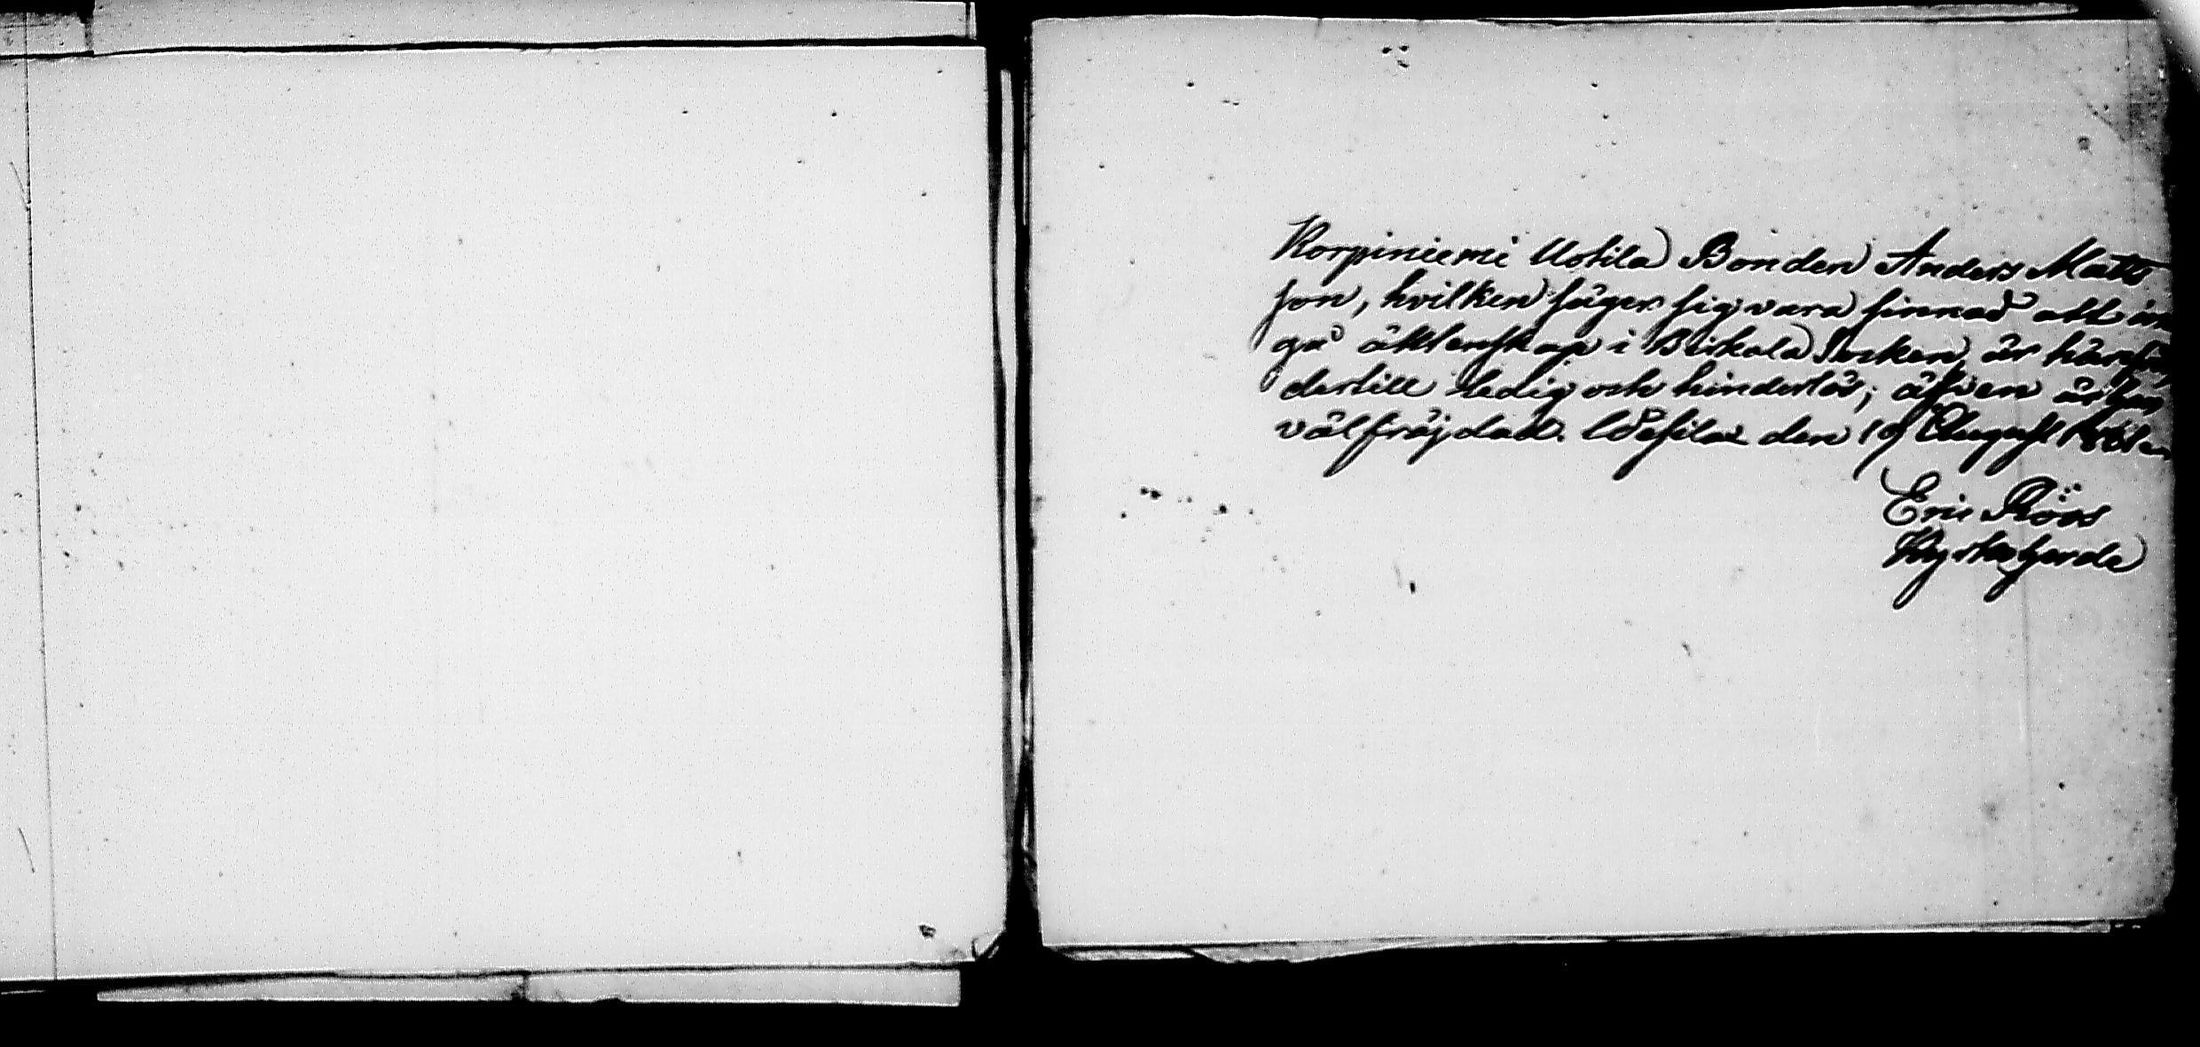 Korpiniemi Uotila Bonden Anders Matts
son, hvilken säger sig vara sinnad att in
gå äktenskap i Birkala Socken, är härifrån
dertill ledig och hinderlös; äfven är han
välfräjdad. Wesilax den 19 August
Eric Röös
Kyrkoherde